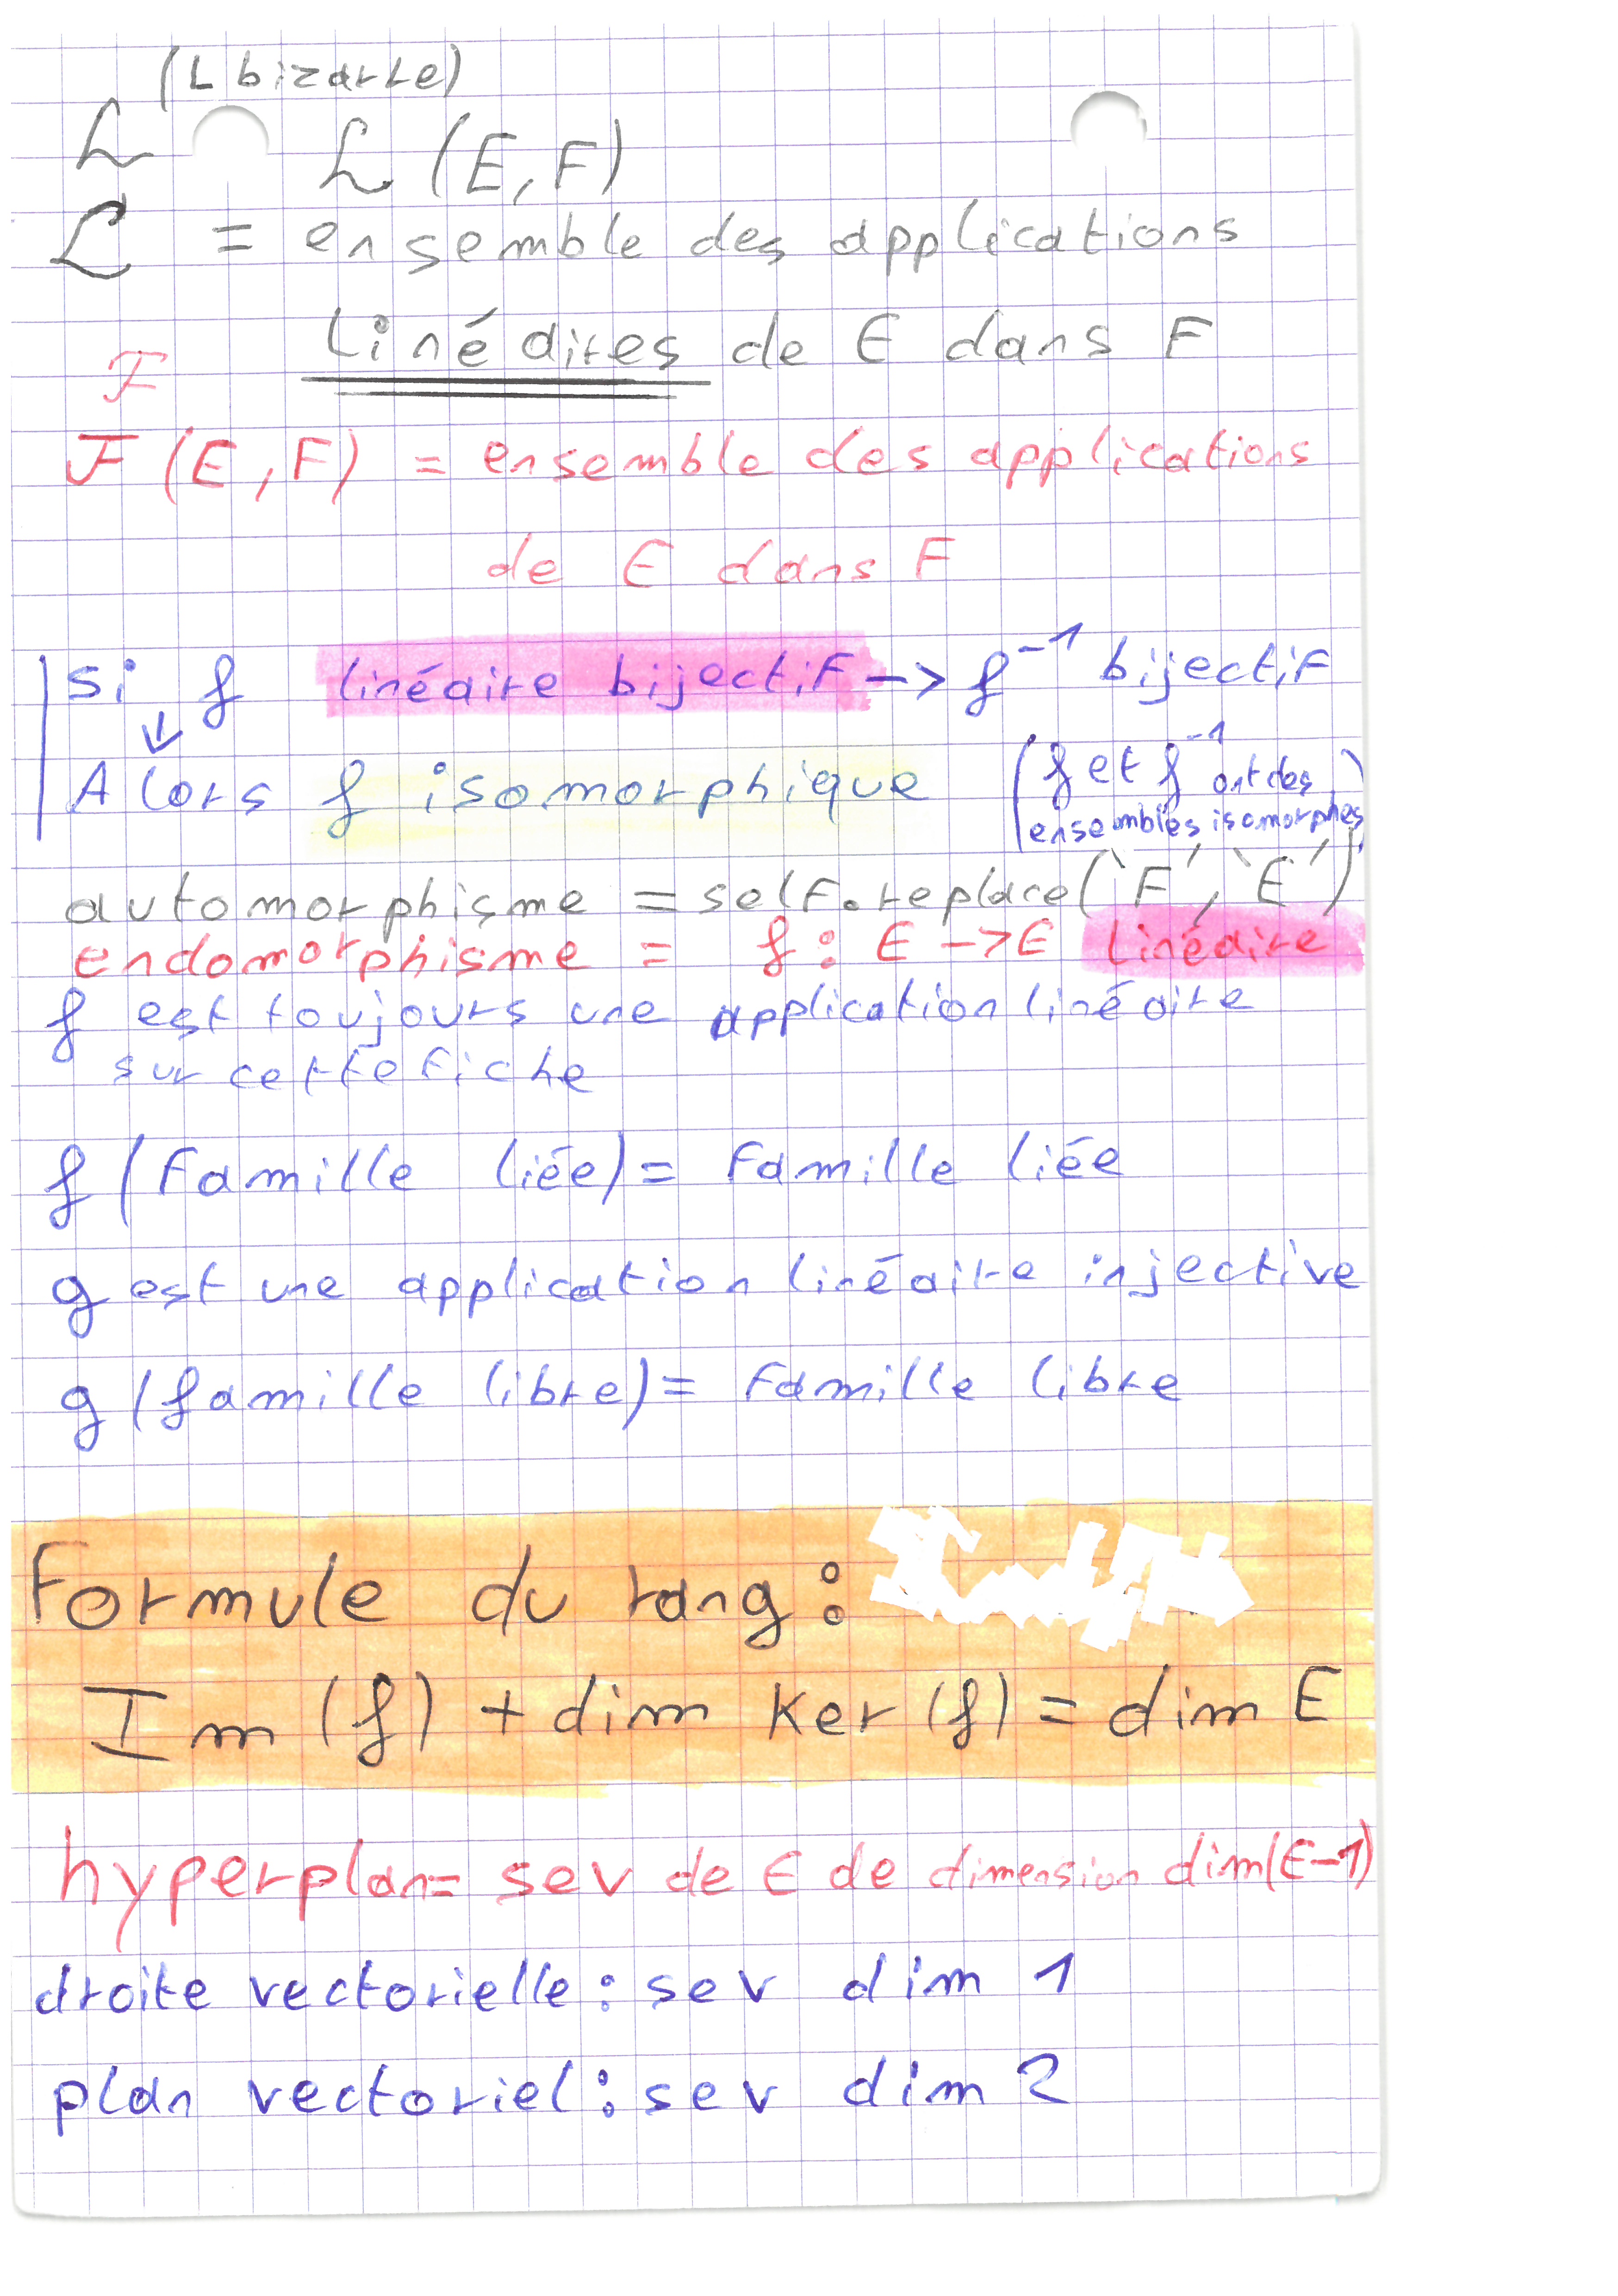 (L bizarre)
ℒ ℒ (E, F)
ℒ = ensemble des applications
linéaires de E dans F
ℱ
ℱ (E, F) = ensemble des applications
de E dans F
Si f linéaire bijectif -> f⁻¹ bijectif
↓
Alors f isomorphique (f et f⁻¹ ont des ensembles isomorphes)
automorphisme = self.replace(‘F’, ‘E’)
endomorphisme = f : E -> E linéaire
f est toujours une application linéaire
sur cette fiche
f (famille liée) = famille liée
g est une application linéaire injective
g (famille libre) = famille libre
Formule du rang :
Im (f) + dim Ker (f) = dim E
hyperplan = sev de E de dimension dim(E-1)
droite vectorielle : sev dim 1
plan vectoriel : sev dim 2